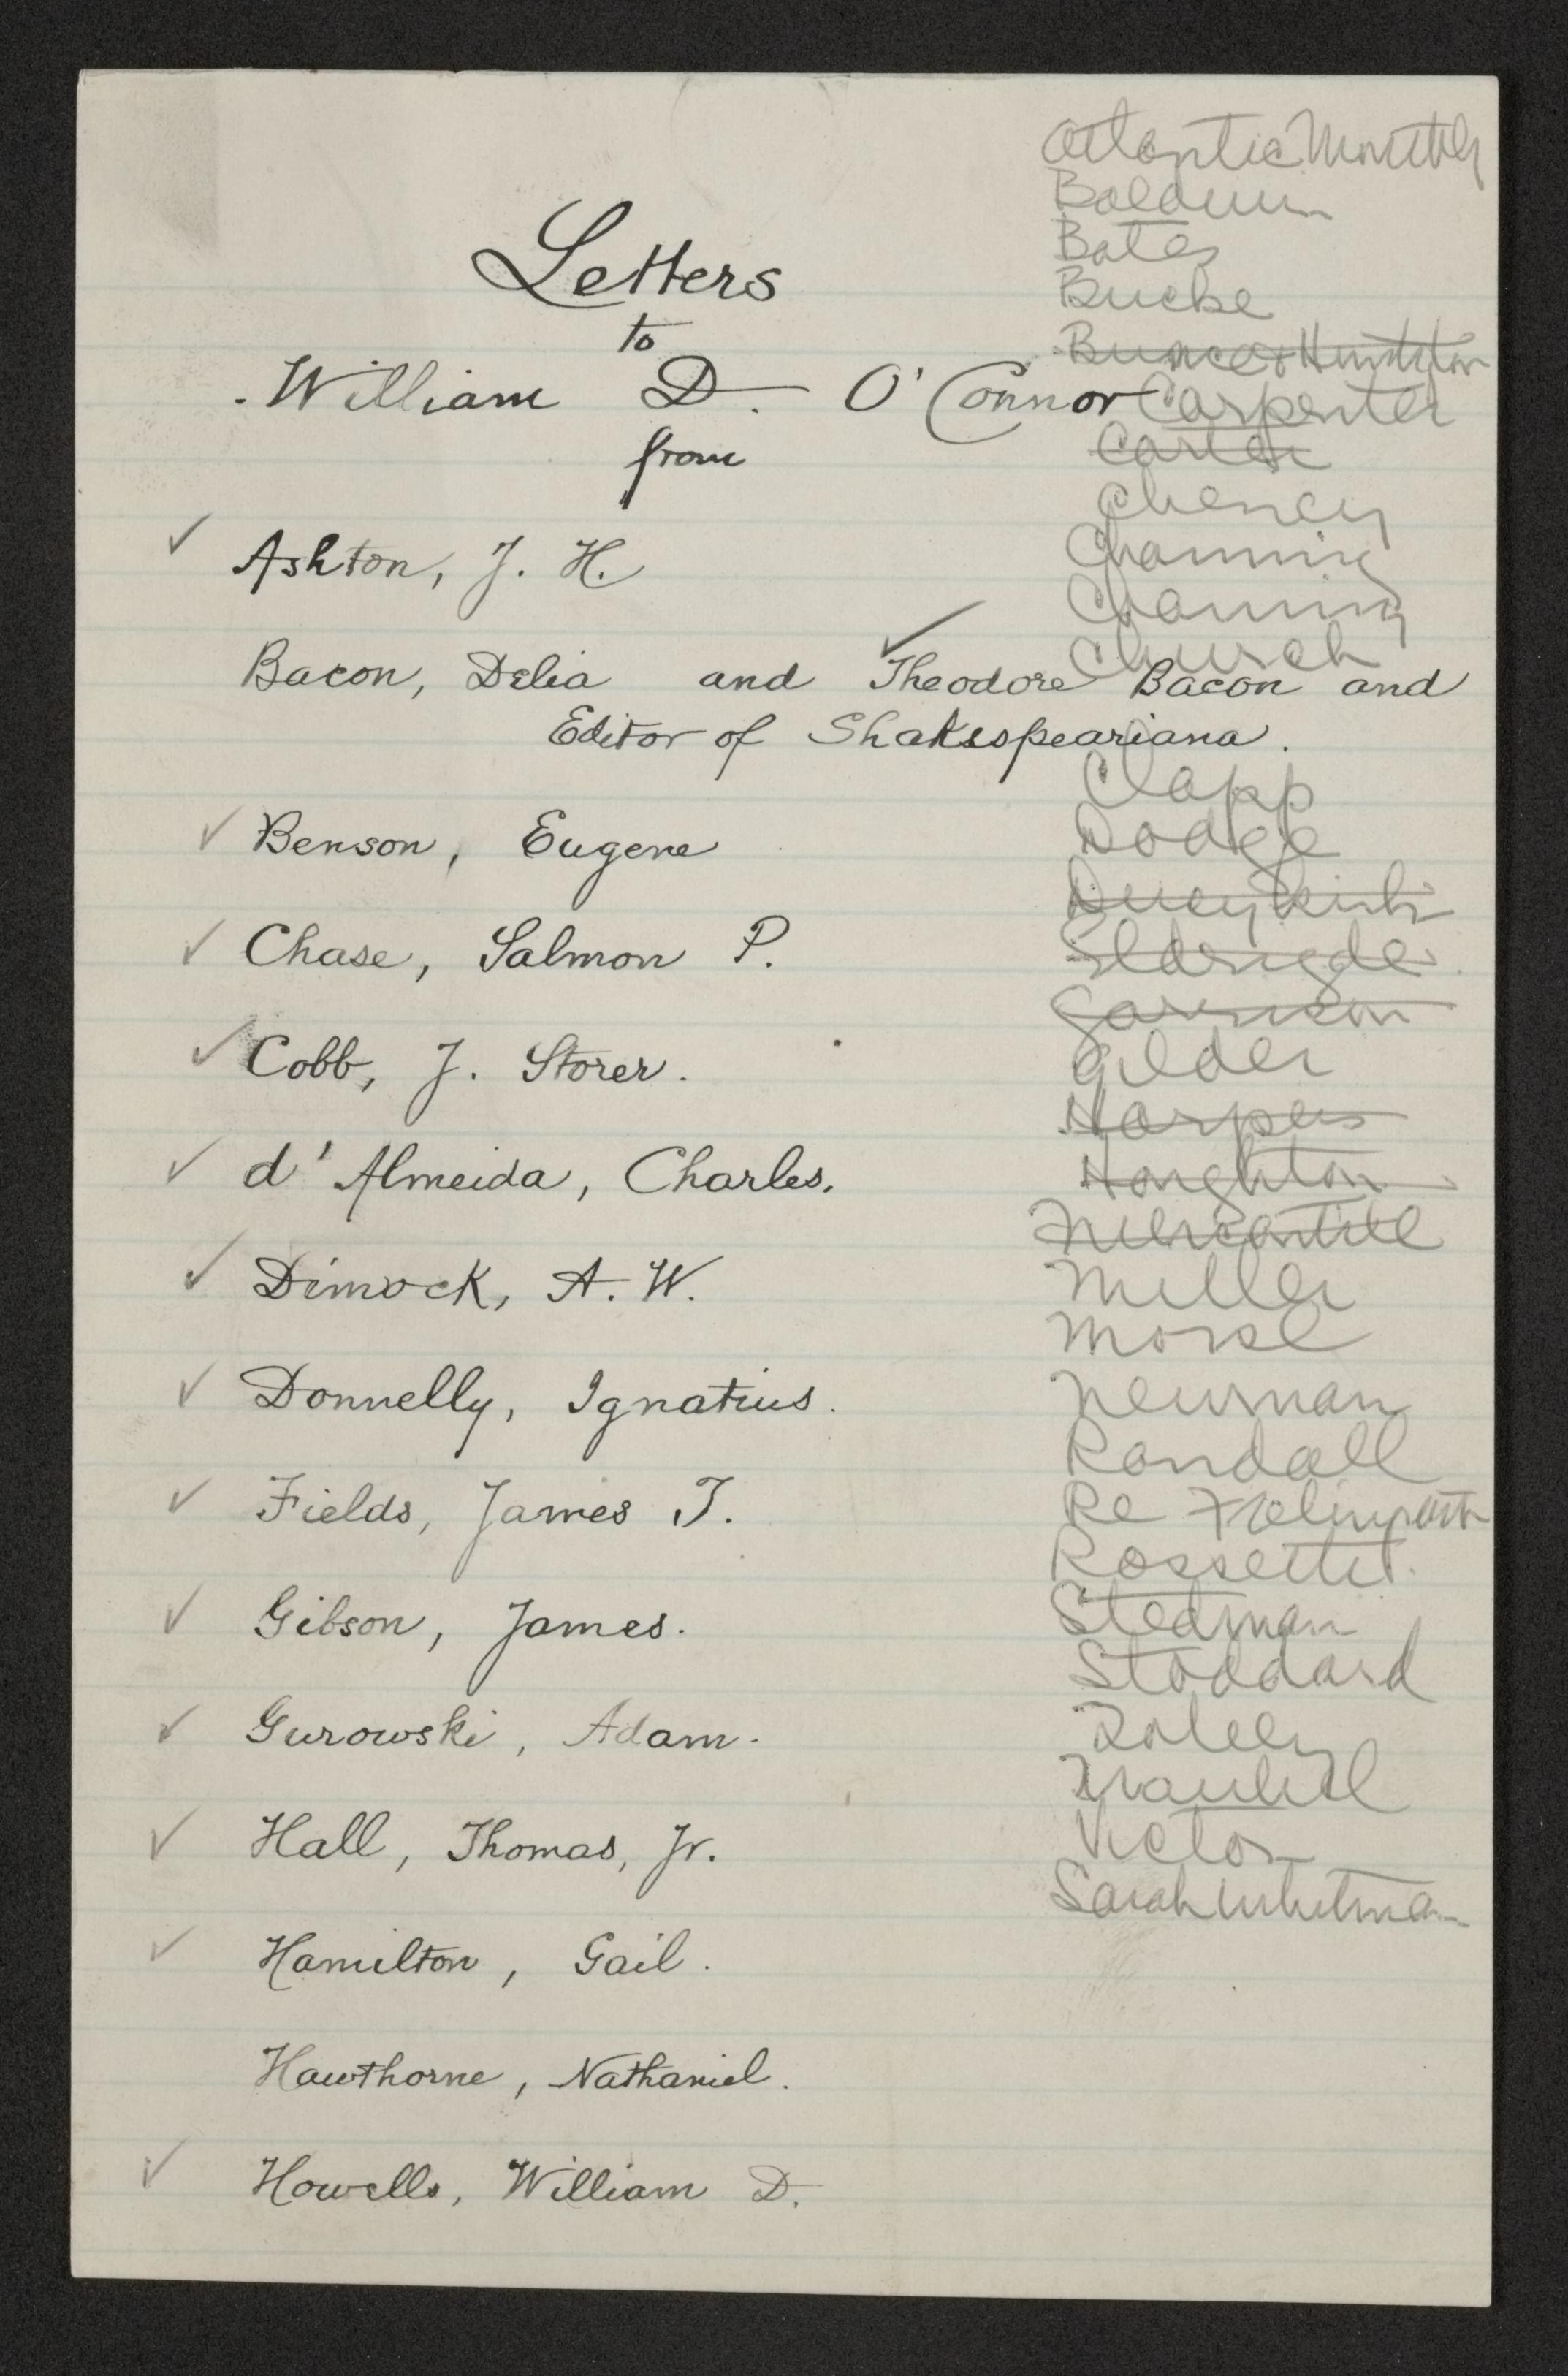 Letters
to
William D. O'Connor
from
✓ Ashton, J. H.
Bacon, Delia and ✓ Theodore Bacon and
Editor of Shakespeariana.
✓ Benson, Eugene
✓ Chase, Salmon P.
✓ Cobb, J. Storer.
✓ d'Almeida, Charles.
✓ Dimock, A. W.
✓ Donnelly, Ignatius.
✓ Fields, James T.
✓ Gibson, James.
✓ Gurowski, Adam.
✓ Hall, Thomas, Jr.
✓ Hamilton, Gail.
Hawthorne, Nathaniel.
✓ Howells, William D.
Atlantic Monthly
Baldwin
Bates
Bucke
Bunce & Huntington
Carpenter
Carter
Cheney
Channing
Channing
Church
Clapp
Dodge
Duyckink
Eldridge
Garrison
Gilder
Harpers
Houghton
Mercantile
Miller
Morse
Newman
Randall
Re
Rossetti
Stedman
Stoddard
Traubel
Victor
Sarah Whitman